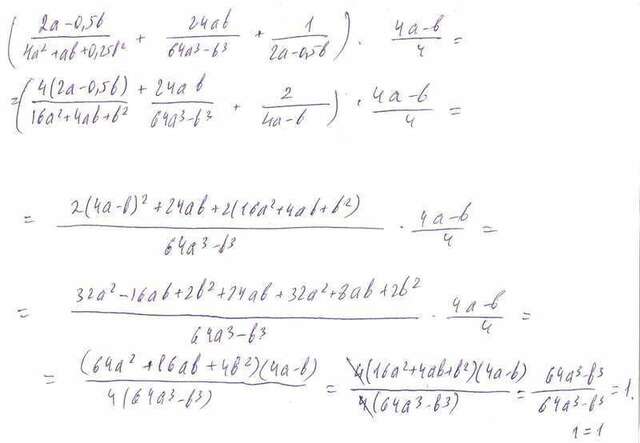 (2a-0,5b / 4a²+ab+0,25b² + 24ab / 64a³-b³ + 1 / 2a-0,5b) · 4a-b / 4 =
=(4(2a-0,5b) / 16a²+4ab+b² + 24ab / 64a³-b³ + 2 / 4a-b) · 4a-b / 4 =
= 2(4a-b)²+24ab+2(16a²+4ab+b²) / 64a³-b³ · 4a-b / 4 =
= 32a²-16ab+2b²+24ab+32a²+8ab+2b² / 64a³-b³ · 4a-b / 4 =
= (64a²+16ab+4b²)(4a-b) / 4(64a³-b³) = 4(16a²+4ab+b²)(4a-b) / 4(64a³-b³) = 64a³-b³ / 64a³-b³ = 1.
1=1